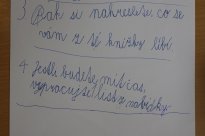 3 Pak si nakreslete, co se
vám z té knížky líbí.
4. Jestli budete mít čas,
vypracujte list z nabídky.